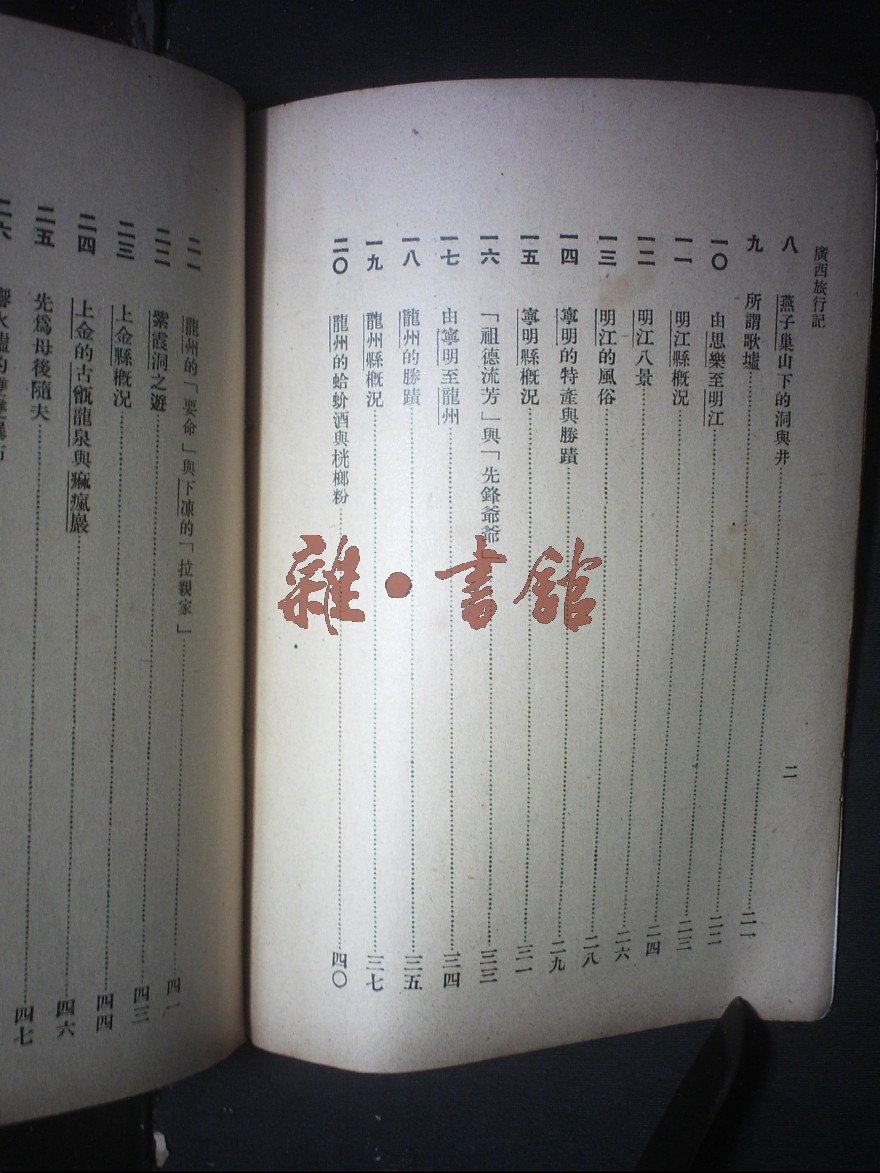 廣西旅行記
二
八 燕子巢山下的洞與井……二一
九 所謂歌墟……二二
一〇 由思樂至明江……二三
一一 明江縣概況……二四
一二 明江八景……二六
一三 明江的風俗……二八
一四 寧明的特產與勝蹟……二九
一五 寧明縣概況……三一
一六 「祖德流芳」與「先鋒爺爺」……三三
一七 由寧明至龍州……三四
一八 龍州的勝蹟……三五
一九 龍州縣概況……三七
二〇 龍州的蛤蚧酒與桄榔粉……四〇
二一 龍州的「耍命」與下凍的「拉親家」……四二
二二 紫霞洞之遊……四三
二三 上金縣概況……四四
二四 上金的古甑龍泉與痲瘋巖……四六
二五 先為母後隨夫……四七
二六 響水墟的
雜·書館